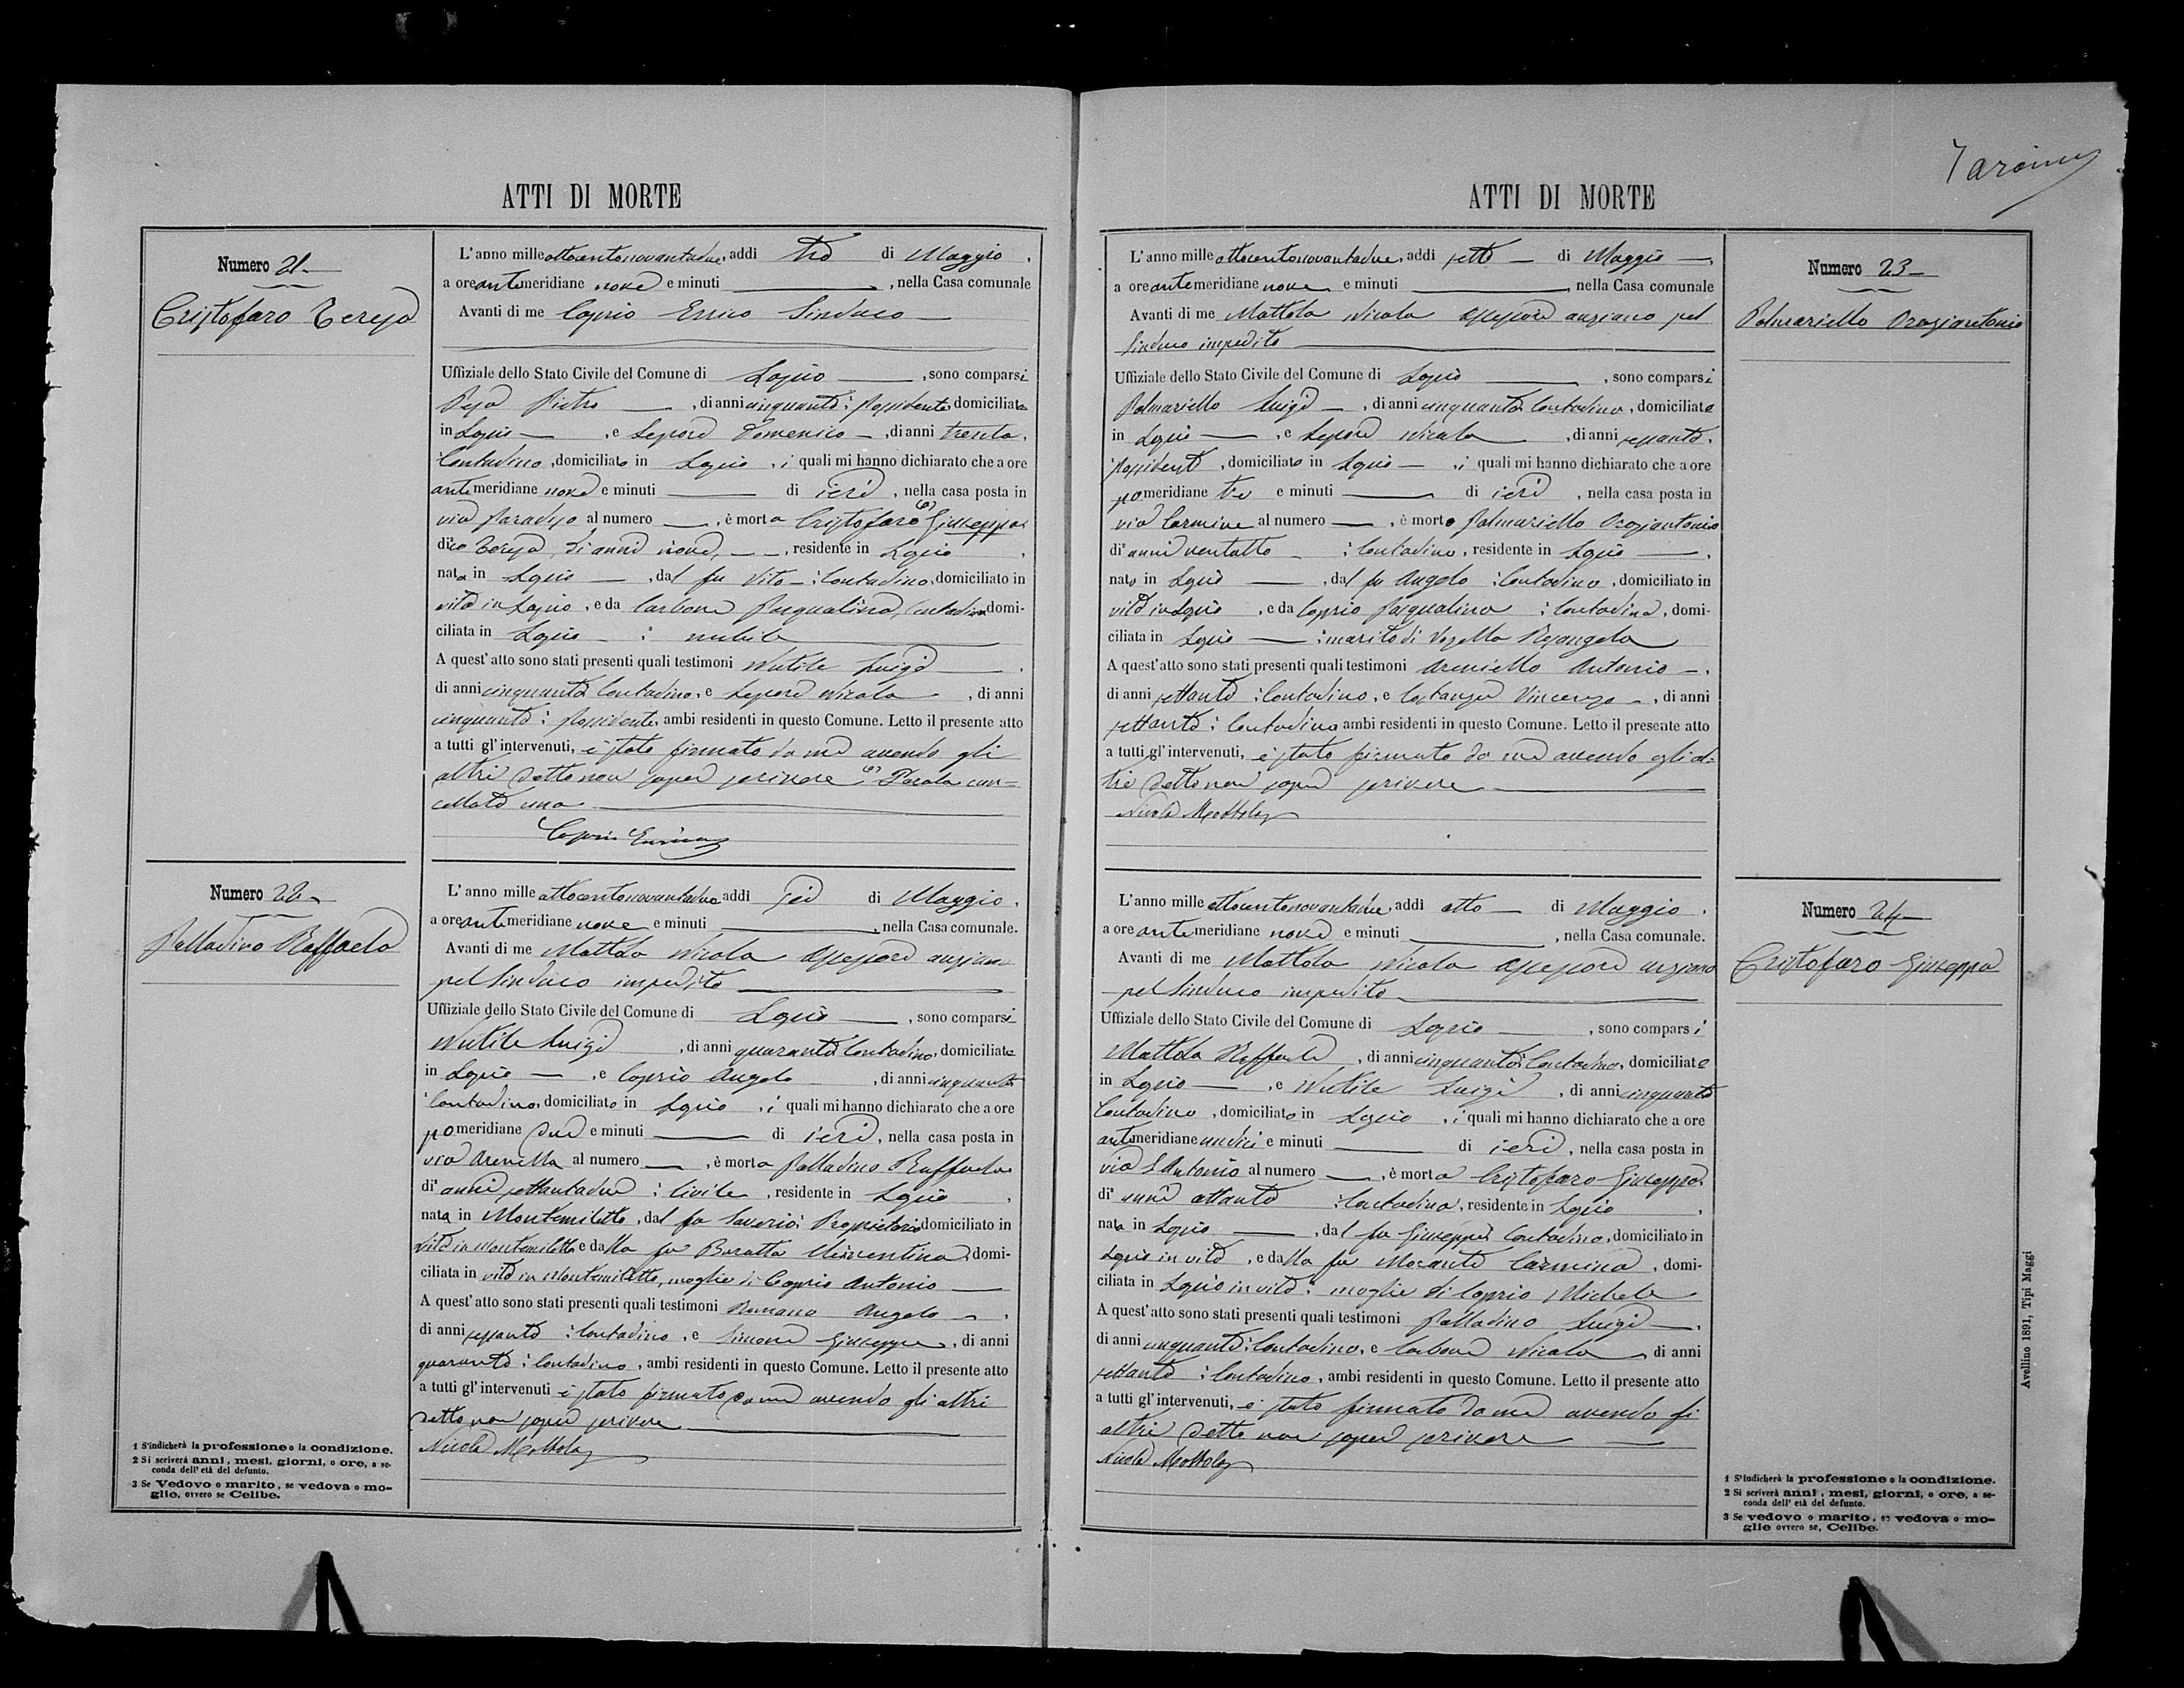 ATTI DI MORTE
Numero 21
Cristofaro Teresa
L'anno milleottocentonovantadue, addi tre di Maggio,
a ore antemeridiane nove e minuti , nella Casa comunale
Avanti di me Caprio Errico Sindaco
Uffiziale dello Stato Civile del Comune di Lapio , sono comparsi
Pietro , di anni cinquanta; Possidente domiciliato
in Lapio , e Lepore Domenico , di anni trenta,
Contadino, domiciliato in Lapio , i quali mi hanno dichiarato che a ore
antemeridiane nove e minuti di ieri , nella casa posta in
via Paradiso al numero , è morta Cristofaro (a) Giuseppa
dico Teresa, di anni nove, , residente in Lapio ,
nata in Lapio , dal fu Vito ; Contadino, domiciliato in
vita in Lapio , e da Carbone Pasqualina, Contadina domi-
ciliata in Lapio ; nubile
A quest'atto sono stati presenti quali testimoni Nutile Luigi ,
di anni cinquanta Contadino, e Lepore Nicola , di anni
cinquanta; Possidente, ambi residenti in questo Comune. Letto il presente atto
a tutti gl'intervenuti, è stato firmato da me avendo gli
altri detto non saper scrivere (a) Parola can-
cellata una
Caprio Errico
Numero 22
Palladino Raffaela
L'anno mille ottocentonovantadue addi sei di Maggio,
a ore antemeridiane nove e minuti , nella Casa comunale.
Avanti di me Mottola Nicola Assessore anziano
pel Sindaco impedito
Uffiziale dello Stato Civile del Comune di Lapio , sono comparsi
Nutile Luigi , di anni quaranta Contadino, domiciliato
in Lapio , e Caprio Angelo , di anni cinquanta
Contadino, domiciliato in Lapio , i quali mi hanno dichiarato che a ore
pomeridiane due e minuti di ieri, nella casa posta in
via Arenella al numero , è morta Palladino Raffaela
di anni settantadue ; Civile , residente in Lapio ,
nata in Montemiletto, dal fu Saverio; Proprietario domiciliato in
vita in Montemiletto e dalla fu Baratta , domi-
ciliata in vita in Montemiletto, moglie di Caprio Antonio
A quest'atto sono stati presenti quali testimoni Romano Angelo ,
di anni sessanta ; Contadino , e Simone Giuseppe , di anni
quaranta ; Contadino , ambi residenti in questo Comune. Letto il presente atto
a tutti gl'intervenuti è stato firmato da me avendo gli altri
detto non saper scrivere
Nicola Mottola
1 S'indicherà la professione o la condizione.
2 Si scriverà anni, mesi, giorni, o ore, a se-
conda dell'età del defunto.
3 Se Vedovo o marito, se vedova o mo-
glie, ovvero se Celibe.
ATTI DI MORTE
Numero 23
Palmariello Oraziantonio
L'anno mille ottocentonovantadue, addi sette di Maggio ,
a ore antemeridiane nove e minuti , nella Casa comunale
Avanti di me Mottola Nicola Assessore anziano pel
Sindaco impedito
Uffiziale dello Stato Civile del Comune di Lapio , sono comparsi
Palmariello Luigi , di anni cinquanta Contadino, domiciliato
in Lapio , e Lepore Nicola , di anni sessanta,
Possidente , domiciliato in Lapio , i quali mi hanno dichiarato che a ore
pomeridiane tre e minuti di ieri , nella casa posta in
via Carmine al numero , è morto Palmariello Oraziantonio
di anni ventotto ; Contadino, residente in Lapio ,
nato in Lapio , dal fu Angelo ; Contadino , domiciliato in
vita in Lapio , e da Caprio Pasqualina ; Contadina, domi-
ciliata in Lapio ; marito di Vozella Rosangela
A quest'atto sono stati presenti quali testimoni Areniello Antonio ,
di anni settanta ; Contadino, e Costanza Vincenzo , di anni
settanta; Contadino ambi residenti in questo Comune. Letto il presente atto
a tutti gl'intervenuti, è stato firmato da me avendo gli al-
tri detto non saper scrivere
Nicola Mottola
Numero 24
Cristofaro Giuseppa
L'anno mille ottocentonovantadue, addi otto di Maggio ,
a ore antemeridiane nove e minuti , nella Casa comunale.
Avanti di me Mottola Nicola Assessore anziano
pel Sindaco impedito
Uffiziale dello Stato Civile del Comune di Lapio , sono comparsi
Mottola Raffaele , di anni cinquanta; Contadino, domiciliato
in Lapio , e Nutile Luigi , di anni cinquanta
Contadino , domiciliato in Lapio , i quali mi hanno dichiarato che a ore
antemeridiane undici e minuti di ieri , nella casa posta in
via S. Antonio al numero , è morta Cristofaro Giuseppa
di anni ottanta ; Contadina, residente in Lapio ,
nata in Lapio , dal fu Giuseppe; Contadino, domiciliato in
Lapio in vita , e dalla fu Morante Carmina , domi-
ciliata in Lapio in vita; moglie di Caprio Michele
A quest'atto sono stati presenti quali testimoni Palladino Luigi ,
di anni cinquanta; Contadino, e Carbone Nicola , di anni
settanta ; Contadino , ambi residenti in questo Comune. Letto il presente atto
a tutti gl'intervenuti, è stato firmato da me avendo gli
altri detto non saper scrivere
Nicola Mottola
1 S'indicherà la professione o la condizione.
2 Si scriverà anni, mesi, giorni, o ore, a se-
conda dell'età del defunto.
3 Se vedovo o marito, se vedova o mo-
glie ovvero se, Celibe.
Avellino 1891, Tipi Maggi